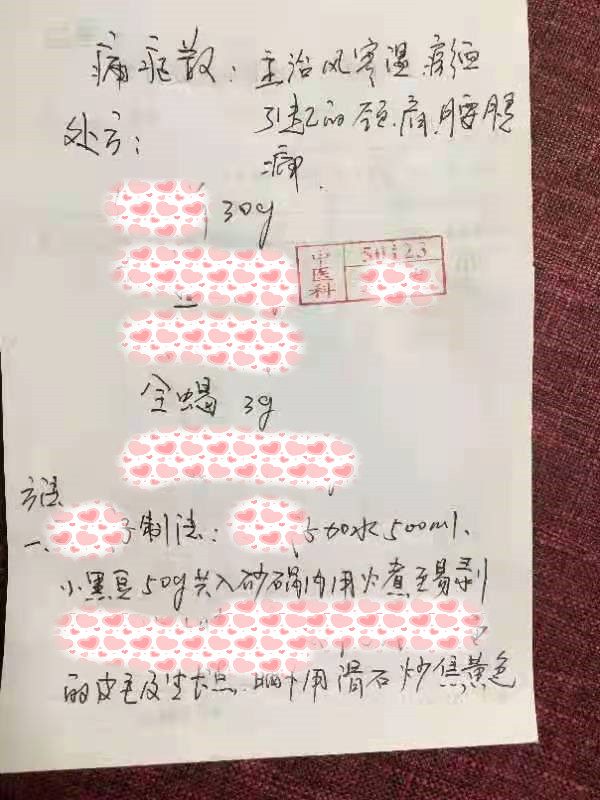 痛疟散：主治风寒湿痹
处方：引起的颈痛腰腿
痛.
30g
中医科 50123
全蝎 3g
方法
一、制法：加水500ml、
小黑豆50g共入砂锅内用火煮至易剥
的皮毛及生长点 晒干用滑石炒焦黄色